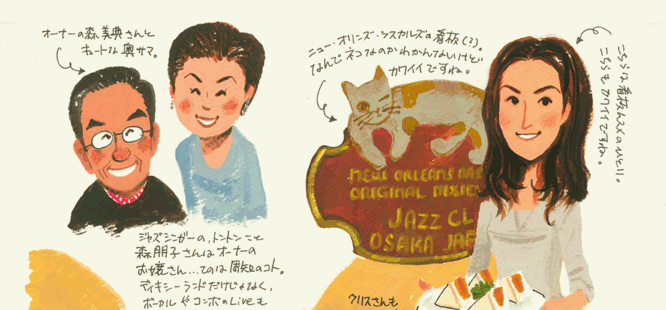 オーナーの森 美典さんと
キュートな奥サマ。
ニュー・オリンズ・ラスカルズの看板(?)。
なんでネコなのかわかんないけど
カワイイですね。
こちらは看板ムスメのひとり。
こちらもカワイイですね。
NEW ORLEANS RAS
ORIGINAL DIXIE
JAZZ CL
OSAKA JAP
ジャズシンガーの、トントンこと
森朋子さんはオーナーの
お嬢さん…てのは周知のコト。
ディキシーランドだけじゃなく、
ボーカルやコンボのLiveも
クリスさんも